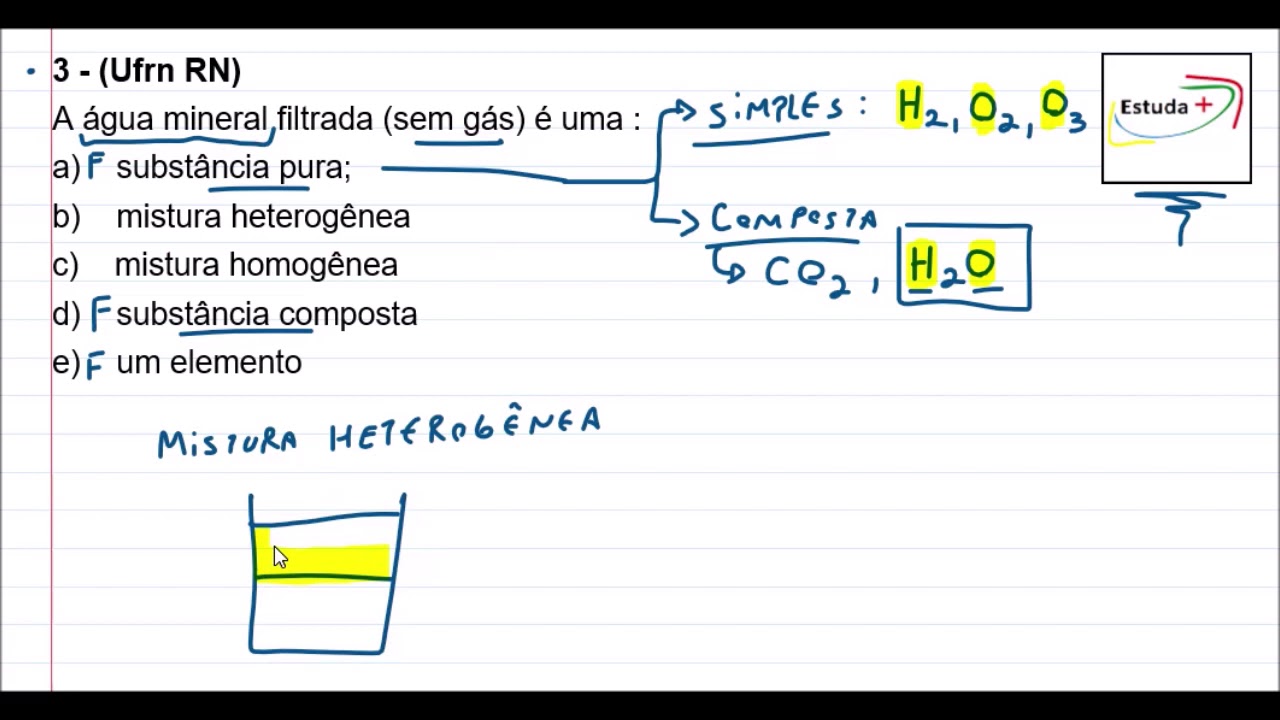 3 - (Ufrn RN)
A água mineral filtrada (sem gás) é uma :
a) F substância pura;
b) mistura heterogênea
c) mistura homogênea
d) F substância composta
e) F um elemento
SiMPLES : H2, O2, O3
COMPOSTA
CO2, H2O
Estuda +
MiSTURA HETEROGÊNEA